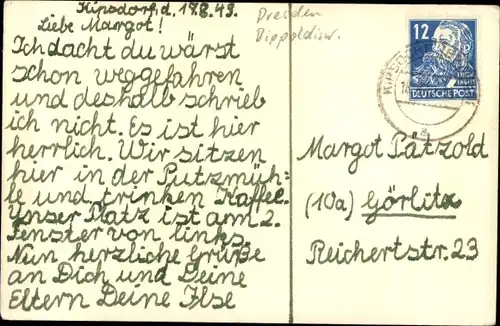 Kipsdorf, d. 17.8.49.
Liebe Margot!
Ich dacht du wärst
schon weggefahren
und deshalb schrieb
ich nicht. Es ist hier
herrlich. Wir sitzen
hier in der Putzmüh-
le und trinken Kaffee.
Unser Platz ist am 2.
Fenster von links.
Nun herzliche Grüße
an Dich und Deine
Eltern Deine Ilse
Dresden
Dippoldisw.
12
DEUTSCHE POST
Margot Pätzold
(10a) Görlitz
Reichertstr. 23